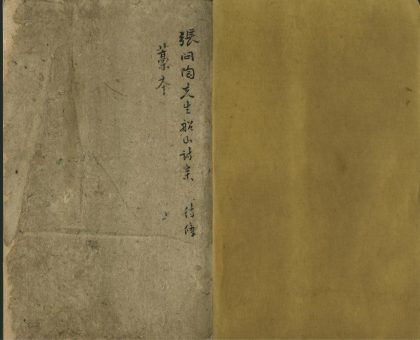 張問陶先生船山詩稾 待傳
藁本
上